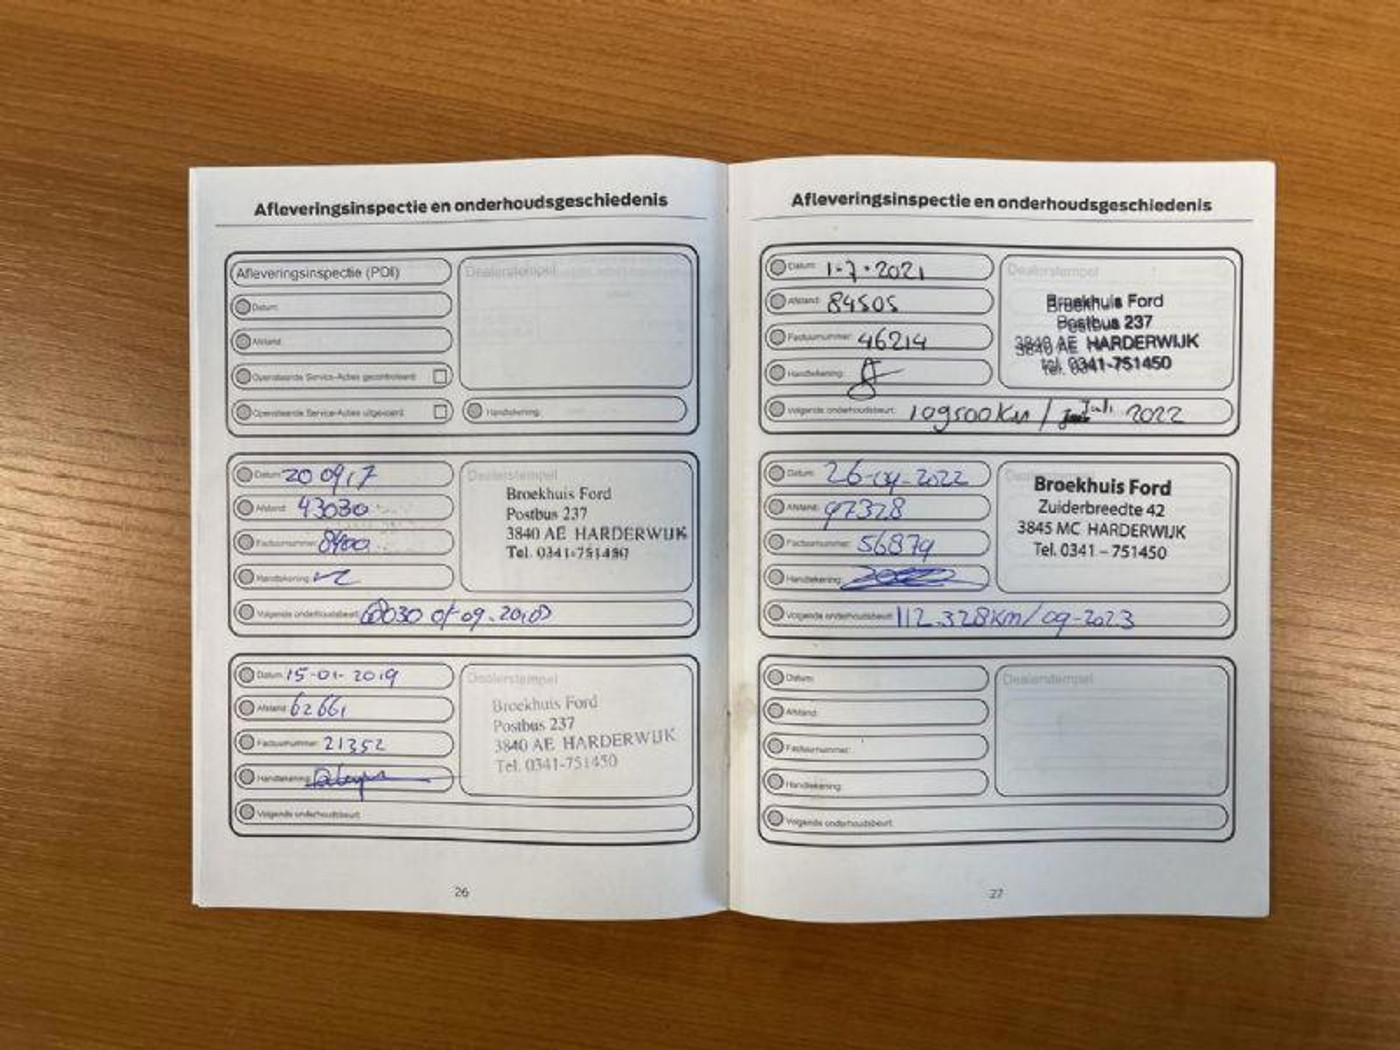 Afleveringsinspectie en onderhoudsgeschiedenis
Afleveringsinspectie (PDI)
Dealerstempel
Datum:
Afstand:
Openstaande Service-Acties gecontroleerd:
Openstaande Service-Acties uitgevoerd:
Handtekening:
Datum: 20 09 17
Afstand: 43030
Factuurnummer: 8400
Handtekening:
Dealerstempel
Broekhuis Ford
Postbus 237
3840 AE HARDERWIJK
Tel. 0341-751450
Volgende onderhoudsbeurt: of 09-2018
Datum: 15-01-2019
Afstand: 62661
Factuurnummer: 21352
Handtekening:
Dealerstempel
Broekhuis Ford
Postbus 237
3840 AE HARDERWIJK
Tel. 0341-751450
Volgende onderhoudsbeurt:
26
Afleveringsinspectie en onderhoudsgeschiedenis
Datum: 1-7-2021
Afstand: 84505
Factuurnummer: 46214
Handtekening:
Dealerstempel
Broekhuis Ford
Postbus 237
3840 AE HARDERWIJK
tel. 0341-751450
Volgende onderhoudsbeurt: 109500 Km / Juli 2022
Datum: 26-04-2022
Afstand: 97328
Factuurnummer: 56879
Handtekening:
Dealerstempel
Broekhuis Ford
Zuiderbreedte 42
3845 MC HARDERWIJK
Tel. 0341 – 751450
Volgende onderhoudsbeurt: 112.328Km/ 09-2023
Datum:
Afstand:
Factuurnummer:
Handtekening:
Dealerstempel
Volgende onderhoudsbeurt:
27